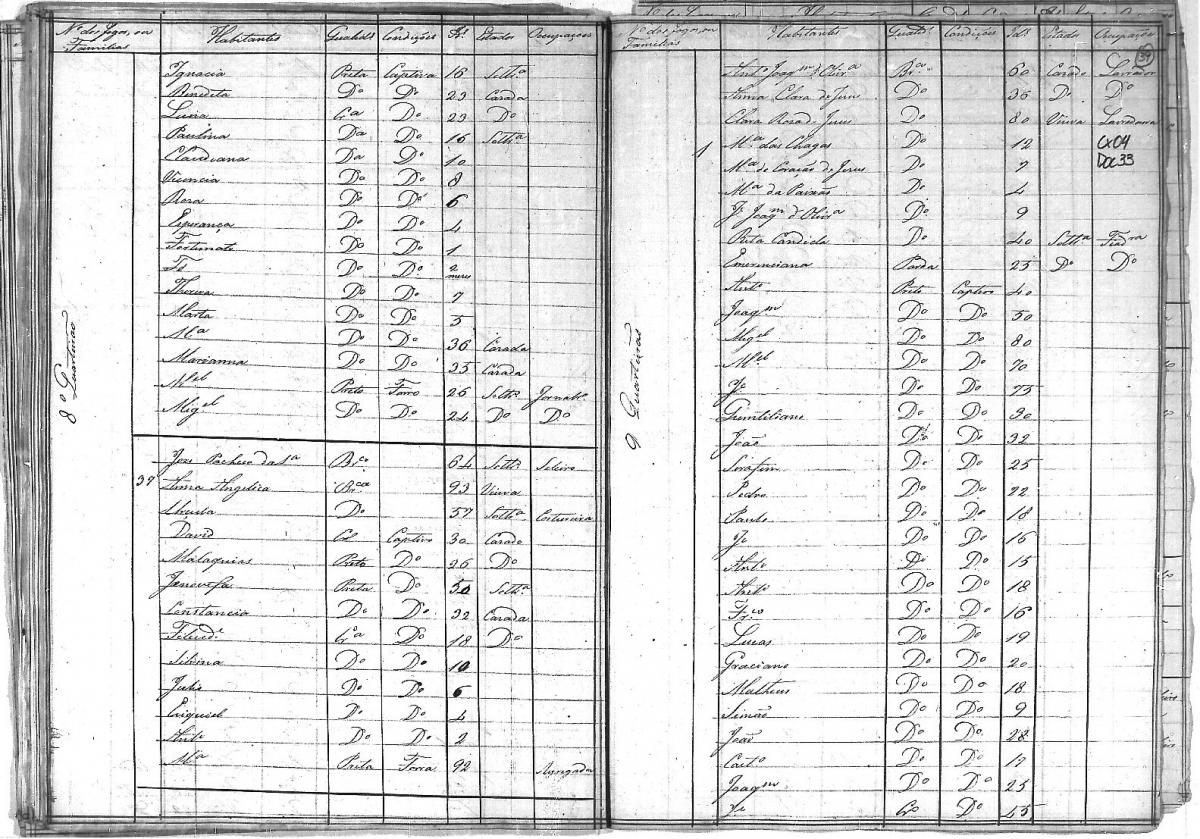 Nº dos fogos, ou Familias Habitantes Qualids Condições Ids Estados Occupações
8º Quarteirão
Ignacia Preta Captiva 16 Soltª
Benedeta Dº Dº 23 Casada
Luiza Cª Dº 23 Dº
Paulina Da Dº 16 Soltª
Claudiana Da Dº 10
Vicencia Dº Dº 8
Rosa Dº Dº 6
Esperança Dº Dº 4
Fortunato Dº Dº 1
Fé Dº Dº 2 mezes
Thereza Dº Dº 7
Marta Dº Dº 5
Mª Dº Dº 36 Casada
Marianna Dº Dº 35 Casada
Mel Preto Forro 26 Soltº Jornalº
Migel Dº Dº 24 Dº Dº
Joze Pacheco da Sª Brco 64 Soltº Seleiro
37 Anna Angelica Brca 93 Viuva
Dº 57 Soltª Costureira
David Captivo 30 Casado
Malaquias Preto Dº 26 Dº
Jenovefa Preta Dº 50 Soltª
Constancia Dº Dº 32 Casada
Cª Dº 18 Dº
Silvina Dº Dº 10
Julio Dº Dº 6
Eziquiel Dº Dº 4
Antº Dº Dº 2
Mª Preta Forra 92 Agregada
Nº dos fogos, ou Familias Habitantes Qualids Condições Ids Estados Occupações
39
9 Quarteirão
Antº Joaqm d'Olivª Brº 60 Casado Lavrador
Anna Clara de Jesus Dº 36 Dº Dº
Clara Rosa de Jesus Dº 80 Viuva Lavradora
1 Mª das Chagas Dº 12
CX04
DOC33
Mª do Coração de Jesus Dº 7
Mª da Paixão Dº 4
Jº Joaqm d'Olivª Dº 9
Rita Candida Dº 40 Soltª Fiadra
Emerenciana Parda 25 Dº Dº
Antº Preto Captivo 40
Joaqm Dº Dº 50
Migel Dº Dº 80
Mel Dº Dº 70
Je Dº Dº 75
Dº Dº 30
João Dº Dº 32
Serafim Dº Dº 25
Pedro Dº Dº 22
Paulo Dº Dº 18
Je Dº Dº 16
Antº Dº Dº 15
Antº Dº Dº 18
Frco Dº Dº 16
Lucas Dº Dº 19
Graciano Dº Dº 20
Matheus Dº Dº 18
Simão Dº Dº 9
João Dº Dº 28
Caetº Dº Dº 17
Joaqm Dº Dº 25
Je Cº Dº 55